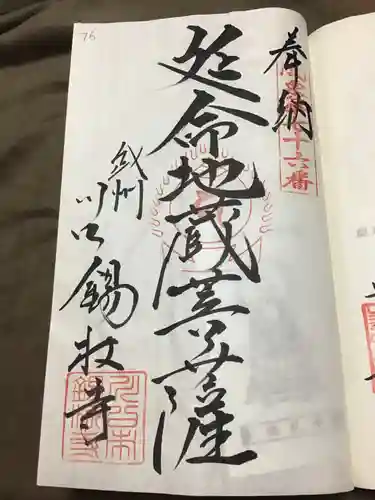 76
奉納
七十六番
延命地蔵菩薩
武州
川口錫杖寺